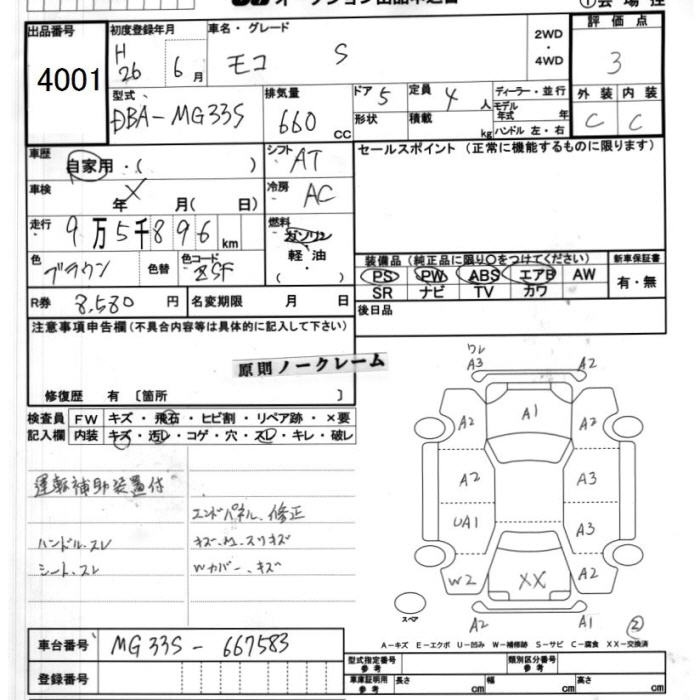 出品番号 初度登録年月 車名・グレード 2WD・4WD 評価点
4001 H 26 6月 モコ S 3
型式 排気量 ドア 5 定員 4人 ディーラー・並行 外装 内装
DBA-MG33S 660 cc 形状 積載 kg モデル年式 年 ハンドル 左・右 C C
車歴 自家用・( ) シフト AT セールスポイント (正常に機能するものに限ります)
車検 X 年 月( 日) 冷房 AC
走行 9万5千896km 燃料 ガソリン 軽・油 ( )
色 ブラウン 色替 色コード ZSF 装備品 (純正品に限り○をつけてください) 新車保証書
PS PW ABS エアB AW 有・無
SR ナビ TV カワ
R券 8,580円 名変期限 月 日 後日品
注意事項申告欄(不具合内容等は具体的に記入して下さい)
原則ノークレーム
修復歴 有 〔箇所 〕
検査員 FW キズ・飛石・ヒビ割・リペア跡・×要
記入欄 内装 キズ・汚レ・コゲ・穴・スレ・キレ・破レ
運転補助装置付
エンドパネル、修正
ハンドル、スレ キズ、凹、スリキズ
シート、スレ Wカバー、キズ
ワレ
A3 A2
A2 A1 A2
A2 A3
UA1 A3
W2 XX A2
スペア A2 A1 2
A-キズ E-エクボ U-凹み W-補修跡 S-サビ C-腐食 XX-交換済
車台番号 MG33S - 667583
登録番号
型式指定番号 参考 類別区分番号 参考
車庫証明用 参考 長さ cm 幅 cm 高さ cm